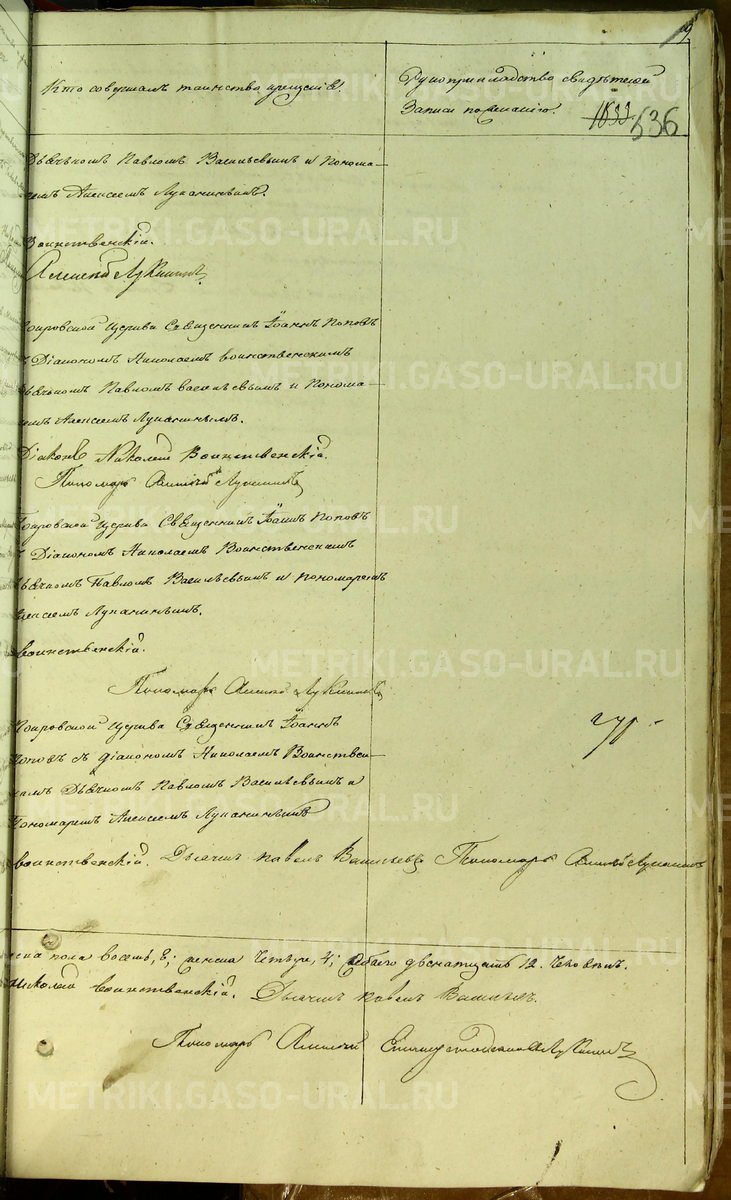 9
Кто совершалъ таинство крещенія.
Рукоприкладство свидѣтелей
Записи по желанію.
1633 636
Дьячкомъ Павломъ Васильевымъ и Понома-
ремъ Алексеемъ Лукинымъ.
Воинственскій.
Алексѣй Лукинъ
Покровской церкви Священникъ Іоаннъ Поповъ
съ Діакономъ Николаемъ Воинственскимъ
Дьячкомъ Павломъ Васильевымъ и Понома-
ремъ Алексеемъ
Діаконъ Николай Воинственскій.
Пономарь Алексѣй
Покровской церкви Священникъ Іоаннъ Поповъ
съ Діакономъ Николаемъ Воинственскимъ
Дьячкомъ Павломъ Васильевымъ и Пономаремъ
Алексеемъ
Воинственскій.
Пономарь Алексѣй Лукинъ
Покровской церкви Священникъ Іоаннъ
Поповъ съ діакономъ Николаемъ Воинствен-
скимъ Дьячкомъ Павломъ Васильевымъ и
Пономаремъ Алексеемъ
Воинственскій. Дьячокъ Павелъ Васильевъ Пономарь Алексѣй
пола восемь, 8; женска четыре, 4; обоего двенатцать 12. Человекъ.
Николай Воинственскій. Дьячокъ Павелъ
Пономарь Алексѣй
METRIKI.GASO-URAL.RU